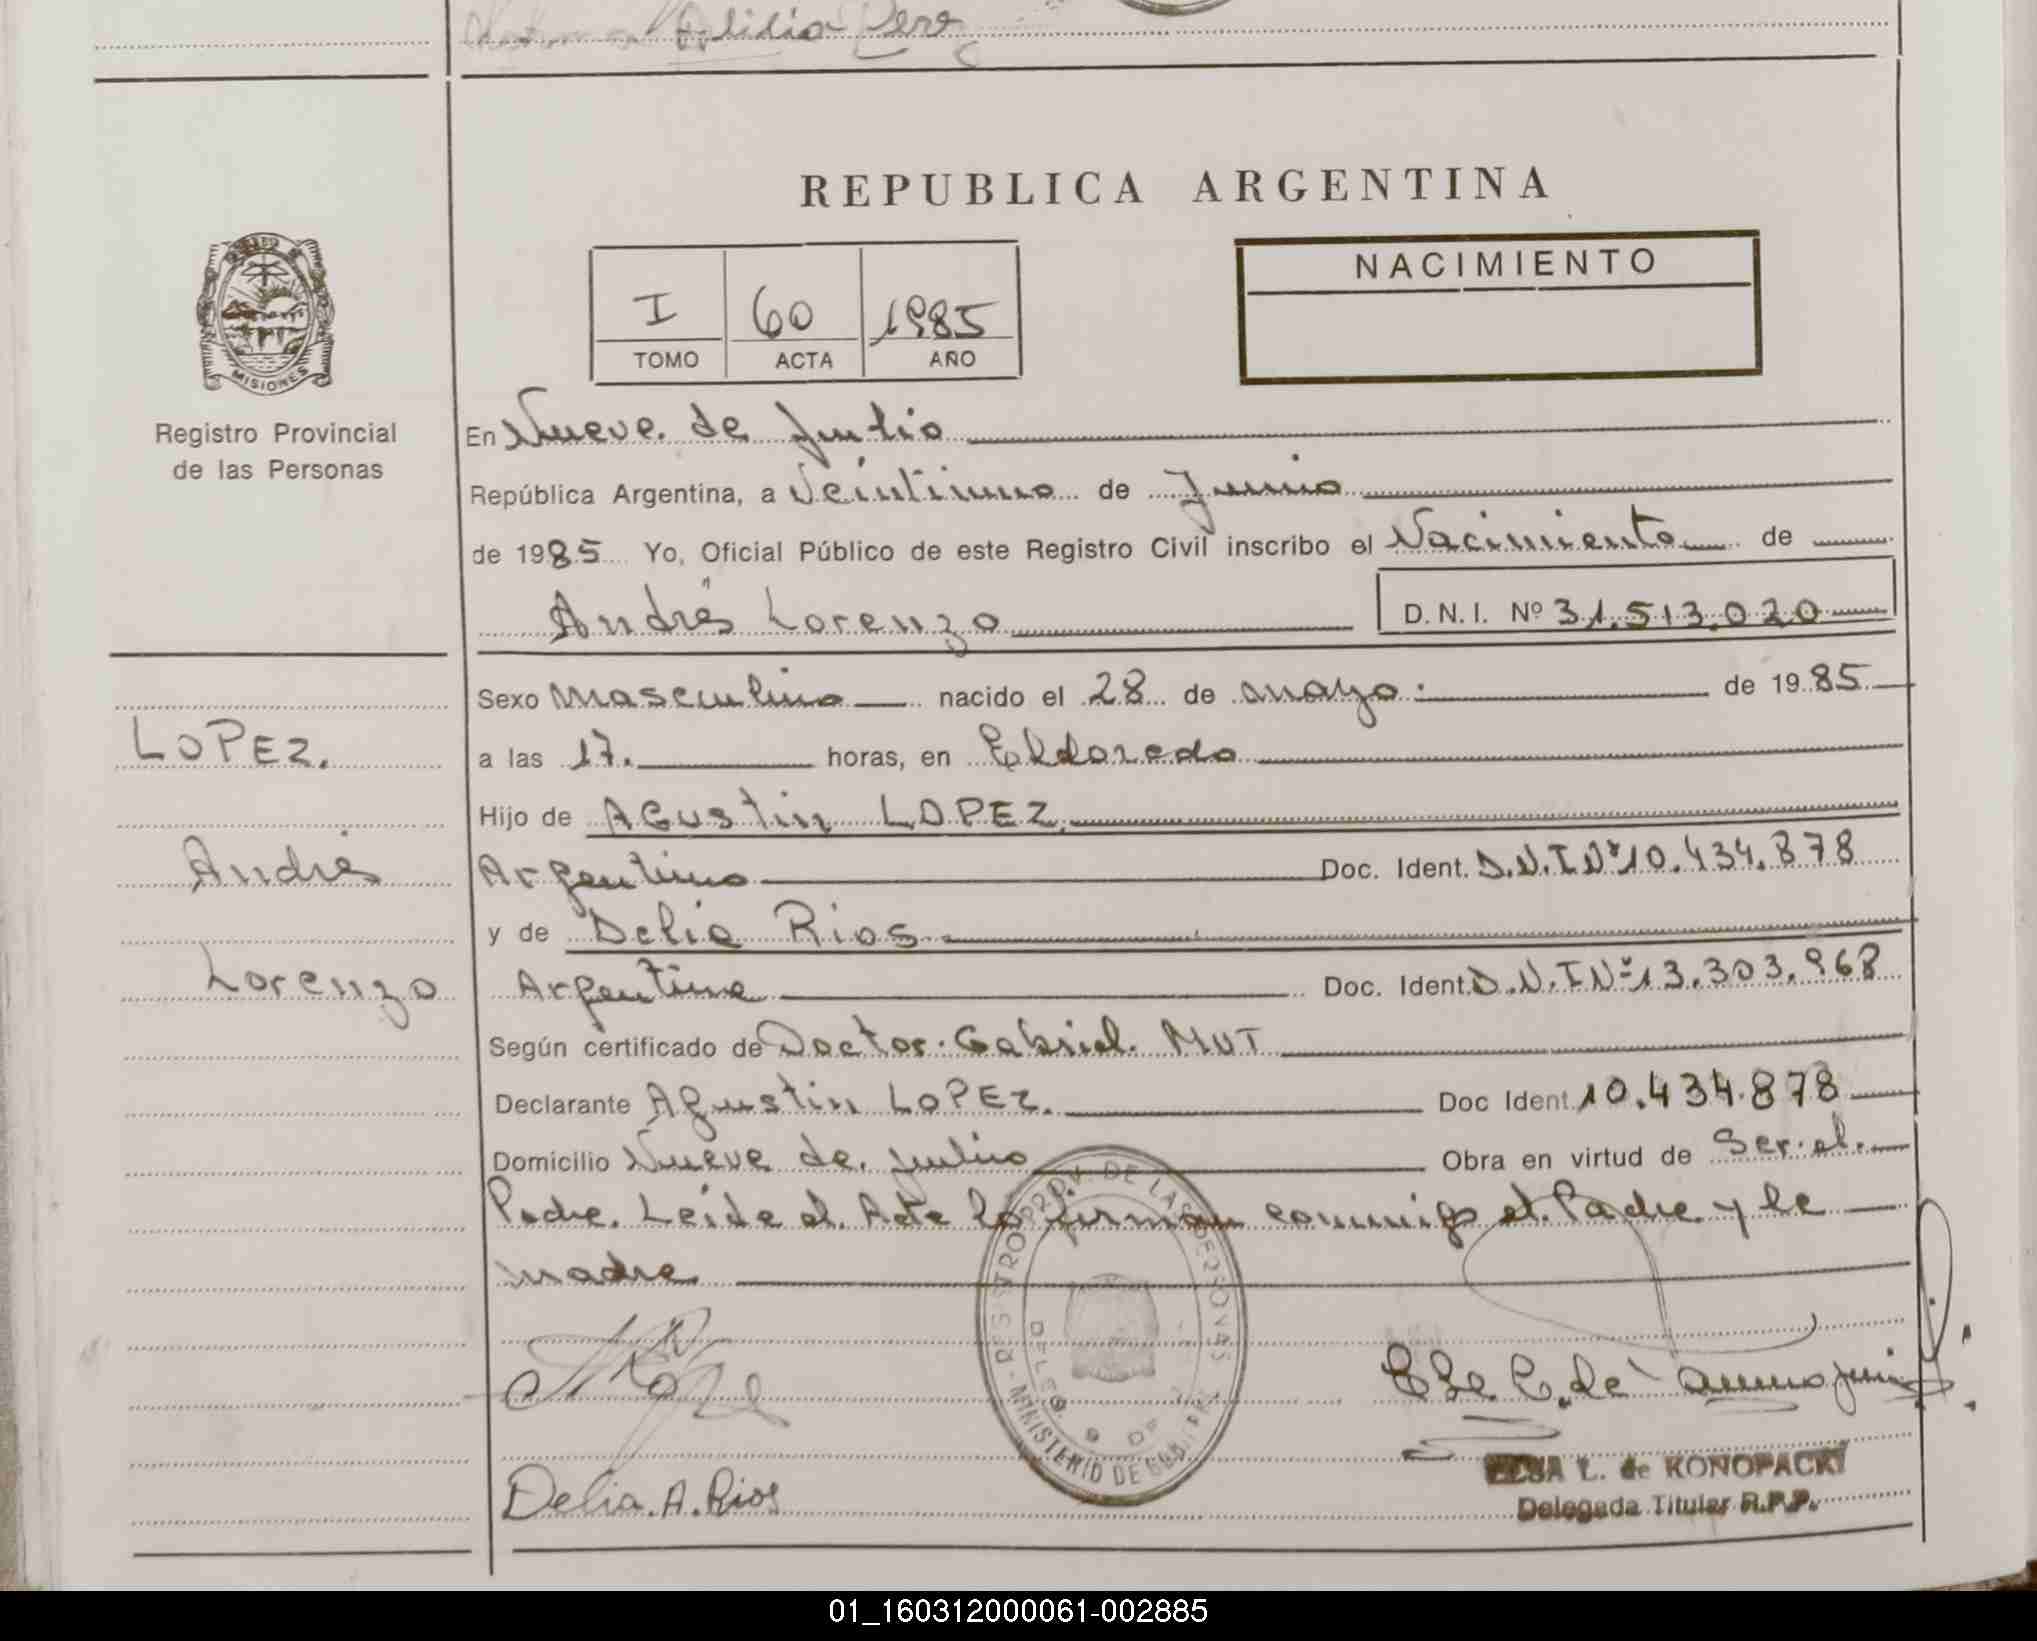 Alidia Pero
REPUBLICA ARGENTINA
NACIMIENTO
I 60 1985
TOMO ACTA AÑO
MISIONES
Registro Provincial
de las Personas
En Nueve de Julio
República Argentina, a Veintiuno de Junio
de 1985 Yo, Oficial Público de este Registro Civil inscribo el Nacimiento de
Andrés Lorenzo D.N.I. Nº 31.513.020
Sexo Masculino nacido el 28 de mayo. de 1985
LOPEZ.
a las 17. horas, en Eldorado
Hijo de AGustin LOPEZ.
Andrés
Argentino Doc. Ident. D.N.I Nº 10.434.878
y de Delia Rios
Lorenzo
Argentina Doc. Ident. D.N.I Nº 13.303.968
Según certificado de Doctor. Gabriel. MUT
Declarante Agustin LOPEZ. Doc Ident. 10.434.878
Domicilio Nueve de Julio Obra en virtud de Ser el
Padre. Leida el Acta la firman conmigo el Padre y la
madre
REGISTRO PROV. DE LAS PERSONAS
MINISTERIO DE GOB.
Delia. A. Rios
ELSA L. de KONOPACKI
Delegada Titular R.P.P.
01_160312000061-002885